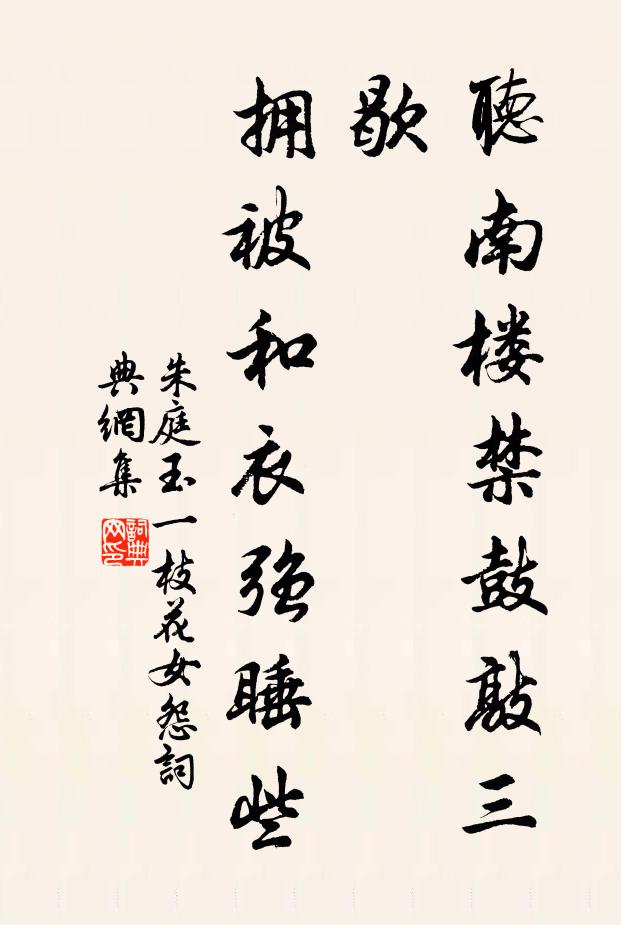 聽南楼禁鼓敲三
歇
拥被和衣强睡些
朱庭玉一枝花女怨詞
典網集
詞典网印